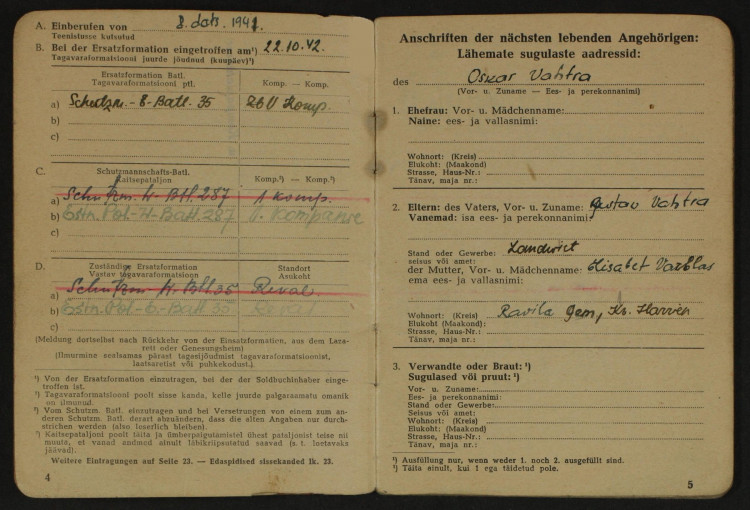 A. Einberufen von 8. dets. 1941.
Teenistusse kutsutud
B. Bei der Ersatzformation eingetroffen am¹) 22.10.42.
Tagavaraformatsiooni juurde jõudnud (kuupäev)²)
Ersatzformation Batl.
Tagavaraformatsiooni ptl.
Komp. — Komp.
a) Schutzm.-E-Batl. 35
b)
c)
C. Schutzmannschafts-Batl.
Kaitsepataljon
Komp.³) — Komp.⁴)
a) Batl. 287 1 Komp.
b) Estn. Pol-H-Batl. 287 Kompanie
c)
D. Zuständige Ersatzformation
Vastav tagavaraformatsioon
Standort
Asukoht
a) 35 Reval
b) Estn. Pol-E-Batl 35 Reval
c)
(Meldung dortselbst nach Rückkehr von der Einsatzformation, aus dem Laza-
rett oder Genesungsheim)
(Ilmurnine sealsamas pärast tagasijõudmist tagavaraformatsioonist,
laatsaretist või puhkekodust.)
¹) Von der Ersatzformation einzutragen, bei der der Soldbuchinhaber einge-
troffen ist.
²) Tagavaraformatsiooni poolt sisse kanda, kelle juurde palgaraamatu omanik
on ilmunud.
³) Vom Schutzm. Batl. einzutragen und bei Versetzungen von einem zum an-
deren Schutzm. Batl. derart abzuändern, dass die alten Angaben nur durch-
strichen werden (also leserlich bleiben).
⁴) Kaitsepataljoni poolt täita ja ümberpaigutamistel ühest pataljonist teise nii
muuta, et vanad andmed ainult läbikriipsutatud saavad (s. t. loetavaks
jäävad).
Weitere Eintragungen auf Seite 23. — Edaspidised sissekanded lk. 23.
4
Anschriften der nächsten lebenden Angehörigen:
Lähemate sugulaste aadressid:
des Oskar Vahtra
(Vor- u. Zuname — Ees- ja perekonnanimi)
1. Ehefrau: Vor- u. Mädchenname:
Naine: ees- ja vallasnimi:
Wohnort: (Kreis)
Elukoht: (Maakond)
Strasse, Haus-Nr.:
Tänav, maja nr.:
2. Eltern: des Vaters, Vor- u. Zuname: Gustav Vahtra
Vanemad: isa ees- ja perekonnanimi:
Stand oder Gewerbe: Landwirt
seisus või amet:
der Mutter, Vor- u. Mädchenname: Elisabet
ema ees- ja vallasnimi:
Wohnort: (Kreis) Ravila Gem, Kr. Harrien
Elukoht (Maakond):
Strasse, Haus-Nr.:
Tänav, maja nr.:
3. Verwandte oder Braut: ¹)
Sugulased või pruut: ²)
Vor- u. Zuname:
Ees- ja perekonnanimi:
Stand oder Gewerbe:
Seisus või amet:
Wohnort: (Kreis)
Elukoht: (Maakond)
Strasse, Haus-Nr.:
Tänav, maja nr.:
¹) Ausfüllung nur, wenn weder 1. noch 2. ausgefüllt sind.
²) Täita ainult, kui 1 ega täidetud pole.
5